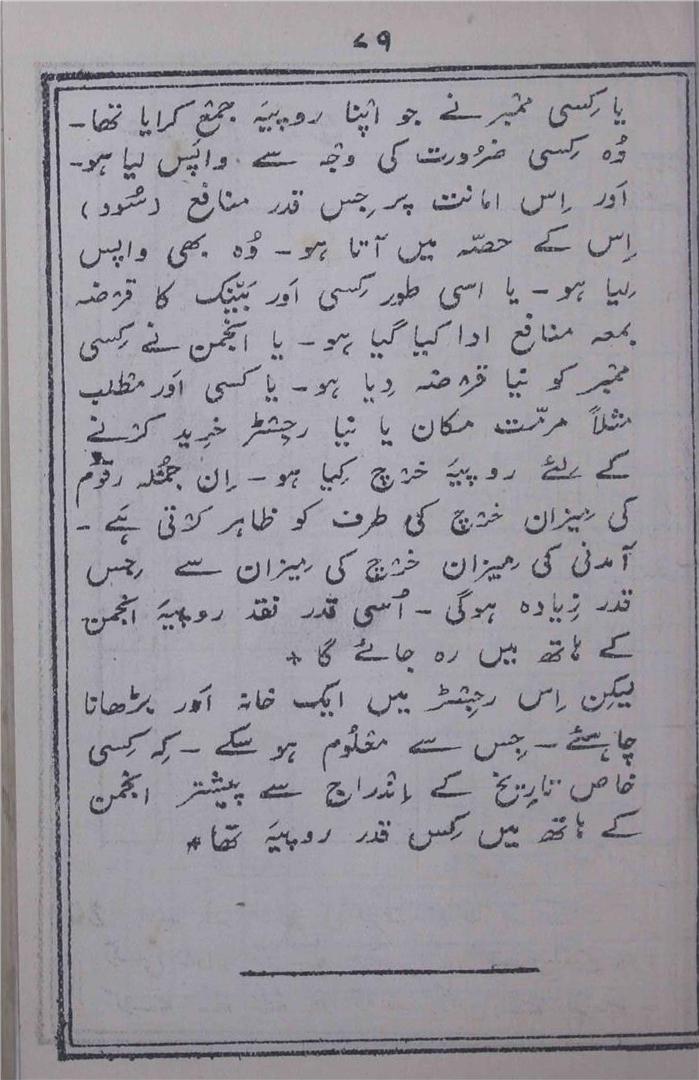 ۷۹
یا کِسی ممبر نے جو اپنا روپیَہ جمع کرایا تھا۔
وُہ کِسی ضرُورت کی وجہ سے واپس لیا ہو۔
اَور اِس امانت پر جِس قدر منافع (سُود)
اِس کے حصّہ میں آتا ہو۔ وُہ بھی واپس
لِیا ہو۔ یا اسی طور کِسی اَور بَینک کا قرضہ
بمعہ منافع ادا کیا گیا ہو۔ یا انجمن نے کِسی
ممبر کو نیا قرضہ دِیا ہو۔ یا کسی اَور مطلب
مثلاً مرمّت مکان یا نیا رجسٹر خرِید کرنے
کے لِئے روپیَہ خرچ کِیا ہو۔ اِن جُملہ رقوُم
کی مِیزان خرچ کی طرف کو ظاہر کرتی ہَے۔
آمدنی کی مِیزان خرچ کی مِیزان سے جِس
قدر زِیادہ ہوگی۔ اُسی قدر نقد روپیَہ انجمن
کے ہاتھ میں رہ جائے گا +
لیکِن اِس رجِسٹر میں ایک خانہ اَور بڑھانا
چاہئے۔ جِس سے معلُوم ہو سکے۔ کہ کِسی
خاص تارِیخ کے اِندراج سے پیشتر انجمن
کے ہاتھ میں کِس قدر روپیَہ تھا *